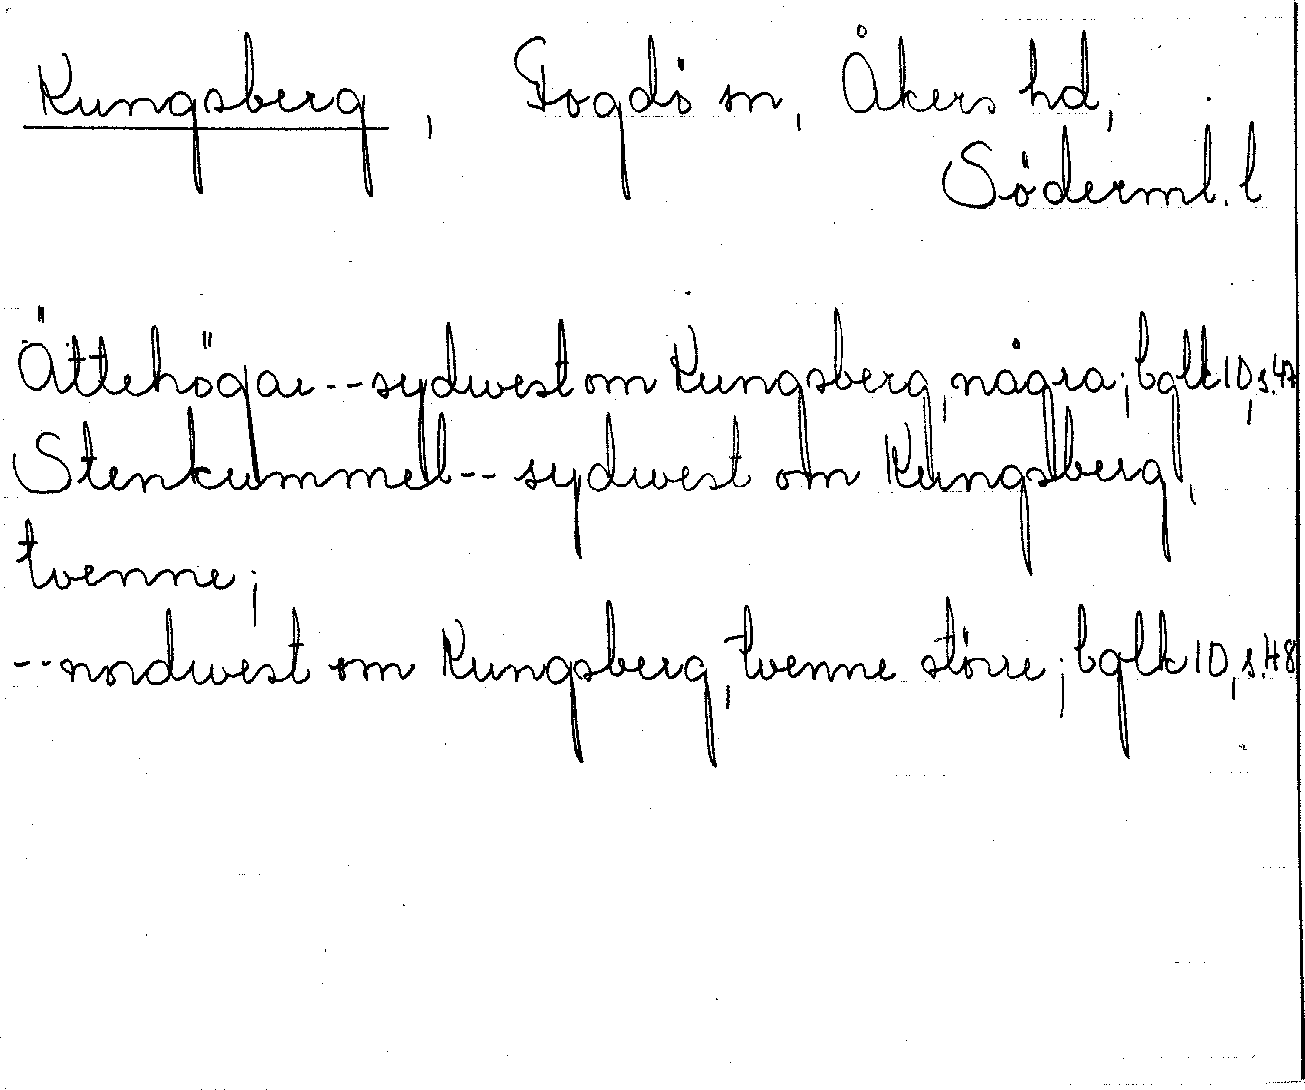 Kungsberg, Fogdö sn, Åkers hd,
Söderml. l
Ättehögar -- sydwest om Kungsberg, några; bglk 10, s.47
Stenkummell -- sydwest om Kungsberg,
tvenne;
-- nordwest om Kungsberg, tvenne större; bglk 10, s.48